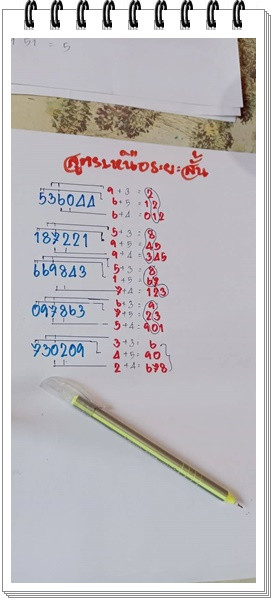 51 = 5
สูตรเหนือระยะสั้น
536044 9 + 3 = 2
6 + 5 = 12
6 + 4 = 012
187221 5 + 3 = 8
9 + 5 = 45
9 + 4 = 345
669843 5 + 3 = 8
1 + 5 = 67
7 + 4 = 123
097863 6 + 3 = 9
7 + 5 = 23
5 + 4 = 901
730209 3 + 3 = 6
4 + 5 = 90
2 + 4 = 678